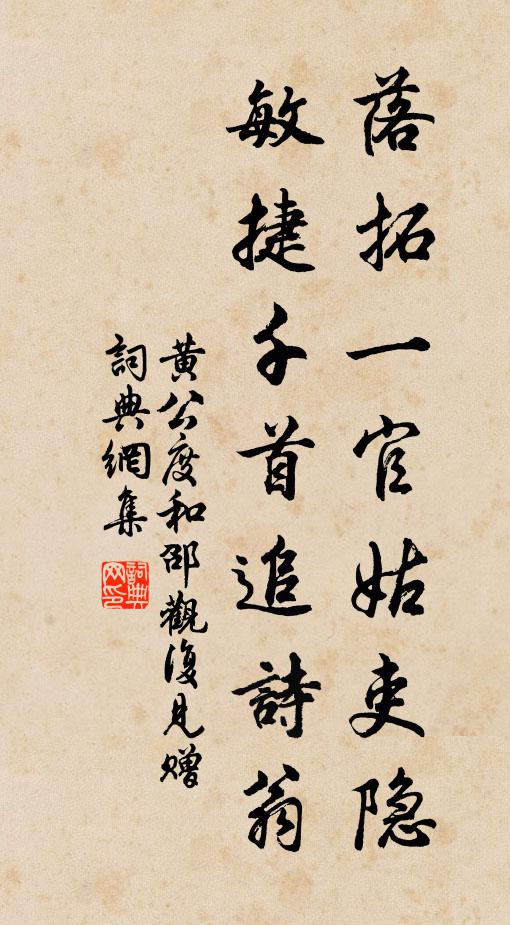 落拓一官姑吏隐
敏捷千首追詩翁
黄公度和邵觀復見贈
詞典網集
詞典网印